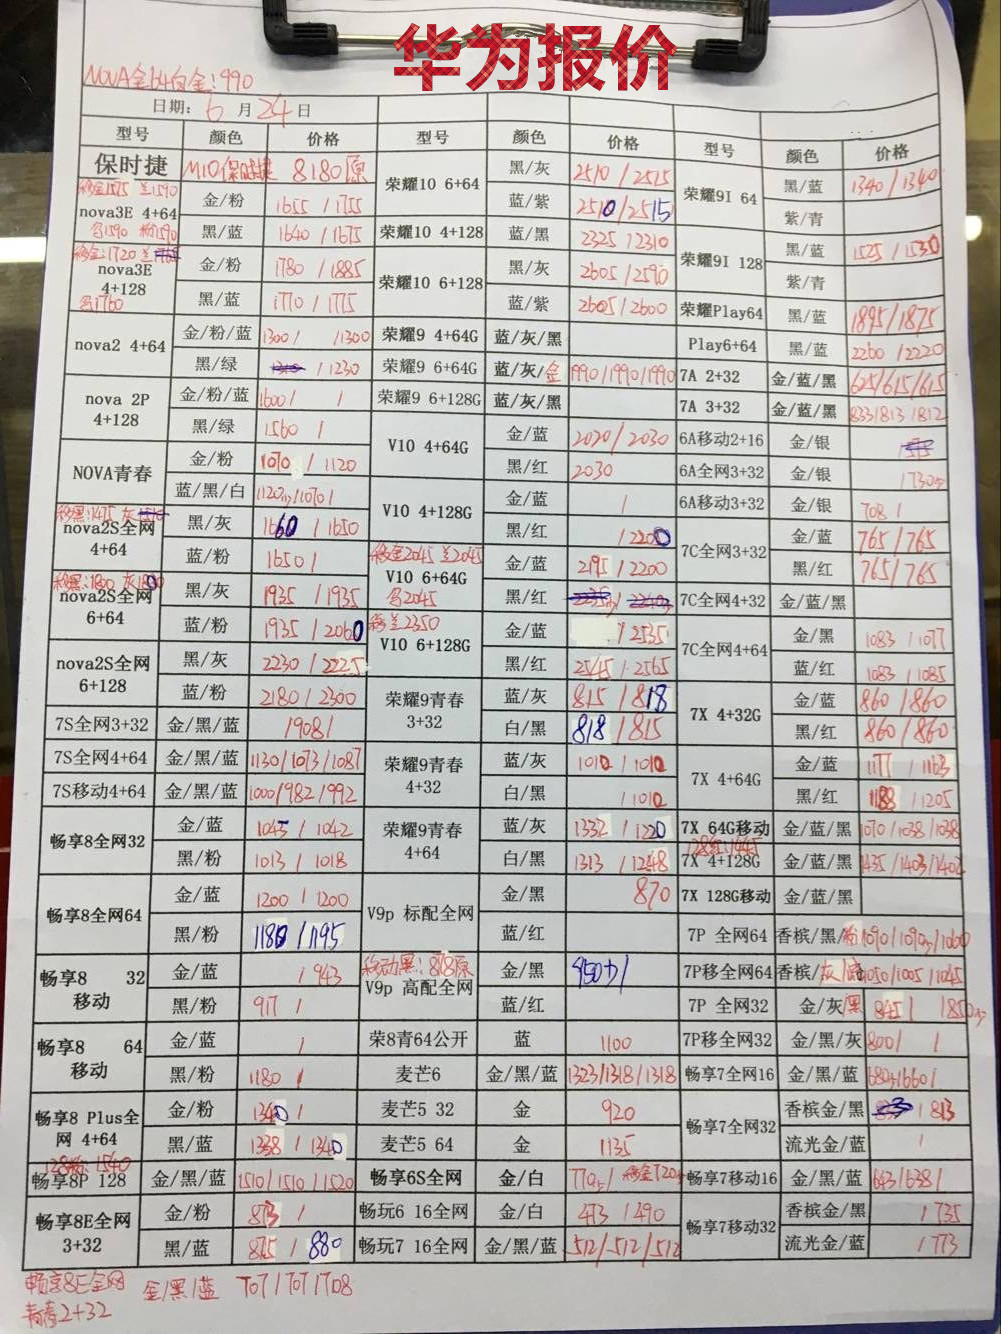 华为报价
NOVA金64白金:990
日期: 6 月 24 日
型号 颜色 价格 型号 颜色 价格 型号 颜色 价格
保时捷 M10保时捷 8180原
荣耀10 6+64 黑/灰 2510/2515
蓝/紫 2510/2515
荣耀9I 64 黑/蓝 1340/1340
紫/青
移金1575 兰1590
nova3E 4+64 金/粉 1655/1755
黑/蓝 1640/1675
荣耀10 4+128 蓝/黑 2325/2310
荣耀9I 128 黑/蓝 1525/1530
紫/青
移金:1720
nova3E 4+128 金/粉 1780/1885
黑/蓝 1770/1775
荣耀10 6+128 黑/灰 2605/2590
蓝/紫 2605/2600
荣耀Play64 黑/蓝 1895/1875
nova2 4+64 金/粉/蓝 1300/ /1300
黑/绿 /1230
荣耀9 4+64G 蓝/灰/黑
Play6+64 黑/蓝 2260/2220
荣耀9 6+64G 蓝/灰/金 1990/1990/1990
7A 2+32 金/蓝/黑 625/615/615
nova 2P 4+128 金/粉/蓝 1600/ /
黑/绿 1560 /
荣耀9 6+128G 蓝/灰/黑
7A 3+32 金/蓝/黑 833/813/812
V10 4+64G 金/蓝 2020/2030
黑/红 2030
6A移动2+16 金/银
NOVA青春 金/粉 1070/1120
蓝/黑/白
6A全网3+32 金/银
V10 4+128G 金/蓝 /
黑/红 /2200
6A移动3+32 金/银 708/
nova2S全网 4+64 黑/灰 1660/1650
蓝/粉 1650/
7C全网3+32 金/蓝 765/765
黑/红 765/765
移金2045 兰2045
V10 6+64G 金/蓝 2195/2200
黑/红
7C全网4+32 金/蓝/黑
nova2S全网 6+64 黑/灰 1935/1935
蓝/粉 1935/2060
移兰2350
V10 6+128G 金/蓝 /2535
黑/红 2545/2565
7C全网4+64 金/黑 1083/1077
蓝/红 1083/1085
nova2S全网 6+128 黑/灰 2230/2225
蓝/粉 2180/2300
荣耀9青春 3+32 蓝/灰 815/818
白/黑 818/815
7X 4+32G 金/蓝 860/860
黑/红 860/860
7S全网3+32 金/黑/蓝 /908/
7S全网4+64 金/黑/蓝 1130/1073/1087
荣耀9青春 4+32 蓝/灰 1010/1010
白/黑 /1010
7X 4+64G 金/蓝 1177/1163
黑/红 1188/1205
7S移动4+64 金/黑/蓝 1000/982/992
畅享8全网32 金/蓝 1045/1042
黑/粉 1013/1018
荣耀9青春 4+64 蓝/灰 1332/1220
白/黑 1313/1248
7X 64G移动 金/蓝/黑 1070/1038/1038
7X 4+128G 金/蓝/黑 1435/1403/1402
畅享8全网64 金/蓝 1200/1200
黑/粉 1180/1195
V9p 标配全网 金/黑 870
蓝/红
7X 128G移动 金/蓝/黑
7P 全网64 香槟/黑/粉
畅享8 32 移动 金/蓝 /943
黑/粉 917/
移动黑:818原
V9p 高配全网 金/黑
蓝/红
7P移全网64 香槟/ 1050/1005/1045
7P 全网32 金/灰/黑
畅享8 64 移动 金/蓝 /
黑/粉 1180 /
荣8青64公开 蓝 1100
7P移全网32 金/黑/灰 800/ /
麦芒6 金/黑/蓝 1323/1318/1318
畅享7全网16 金/黑/蓝
畅享8 Plus全网 4+64 金/粉 1340/
黑/蓝 1338/1340
麦芒5 32 金 920
麦芒5 64 金 1135
畅享7全网32 香槟金/黑 /813
流光金/蓝 /
128粉:1540
畅享8P 128 金/黑/蓝 1510/1510/1520
畅享6S全网 金/白
畅享7移动16 金/黑/蓝 643/638/
畅享8E全网 3+32 金/粉 873 /
黑/蓝 875/880
畅玩6 16全网 金/白 473/490
畅玩7 16全网 金/黑/蓝 512/512/512
畅享7移动32 香槟金/黑 /735
流光金/蓝 /773
畅享8E全网 金/黑/蓝 707/707/708
青春2+32